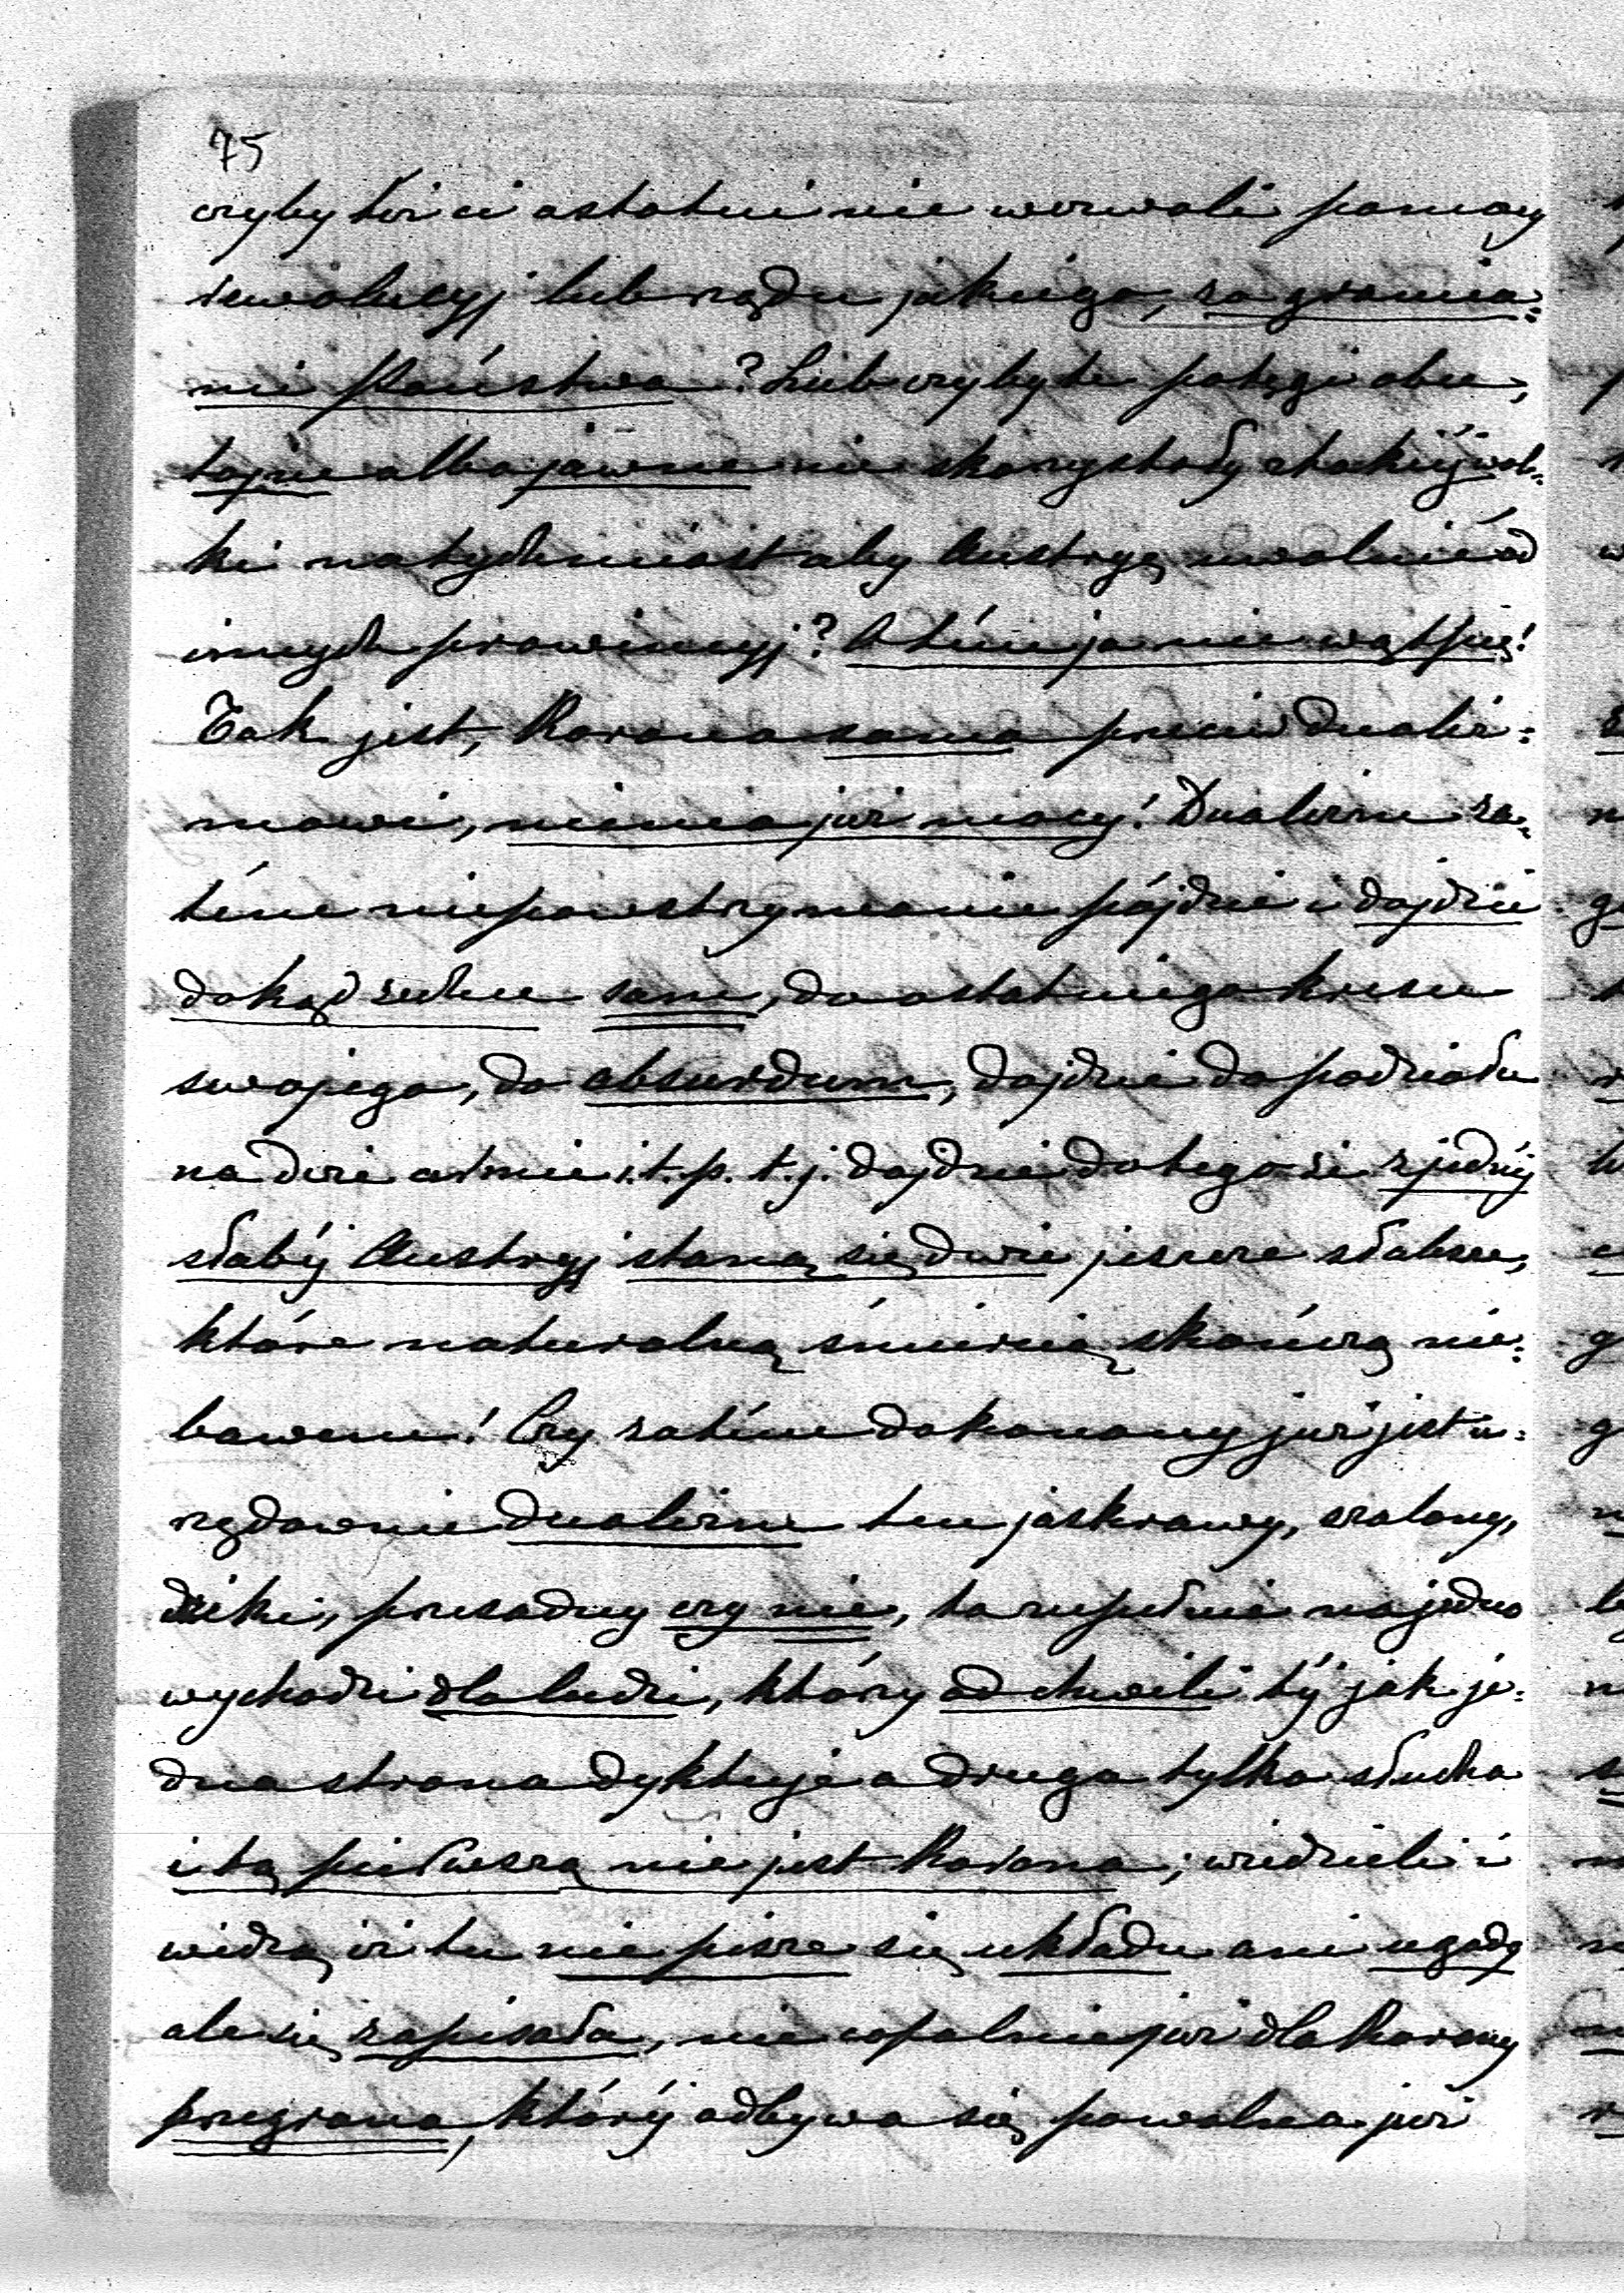 75
czyby też ci ostatni nie wezwali pomocy
rewolucyj lub rządu jakiego, za grania:
mi Państwa? Lub czyby te potęgi obce,
tajne albo jawne nie skorzystały z takiéj wal:
ki natychmiast aby Austryę uwolnić od
innych prowincyj? O tém ja nie wątpię!
Tak jest, Korona sama przeciw dualiz:
mowi, niema już mocy! Dualizm za:
tém niepowstrzymanie pójdzie i dojdzie
dokąd zechce sam, do ostatniego kresu
swojego, do absurdum, dojdzie do podziału
na dwie armie i.t.p. t.j. dojdzie do tego że z jednéj
słabéj Austryj staną się dwie jeszcze słabsze,
które naturalną śmiercią skończą nie:
bawem! Czy zatém dokonany już jest u:
rzędownie dualizm ten jaskrawy, szalony,
dziki, przesadny czy nie, to zupełnie na jedno
wychodzi dla ludzi, którzy od chwili téj jak je:
dna strona dyktuje a druga tylko słucha
i tą pierwszą nie jest Korona; wiedzieli i
widzą iż tu nie pisze się układu ani ugody
ale się zapisała, niecofalnie już dla Korony
przegrana, któréj odbywa się powolna już